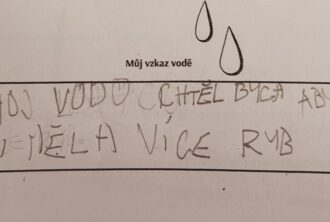 Můj vzkaz vodě
VODO CHTĚL BYCH ABY
MĚLA VÍCE RYB